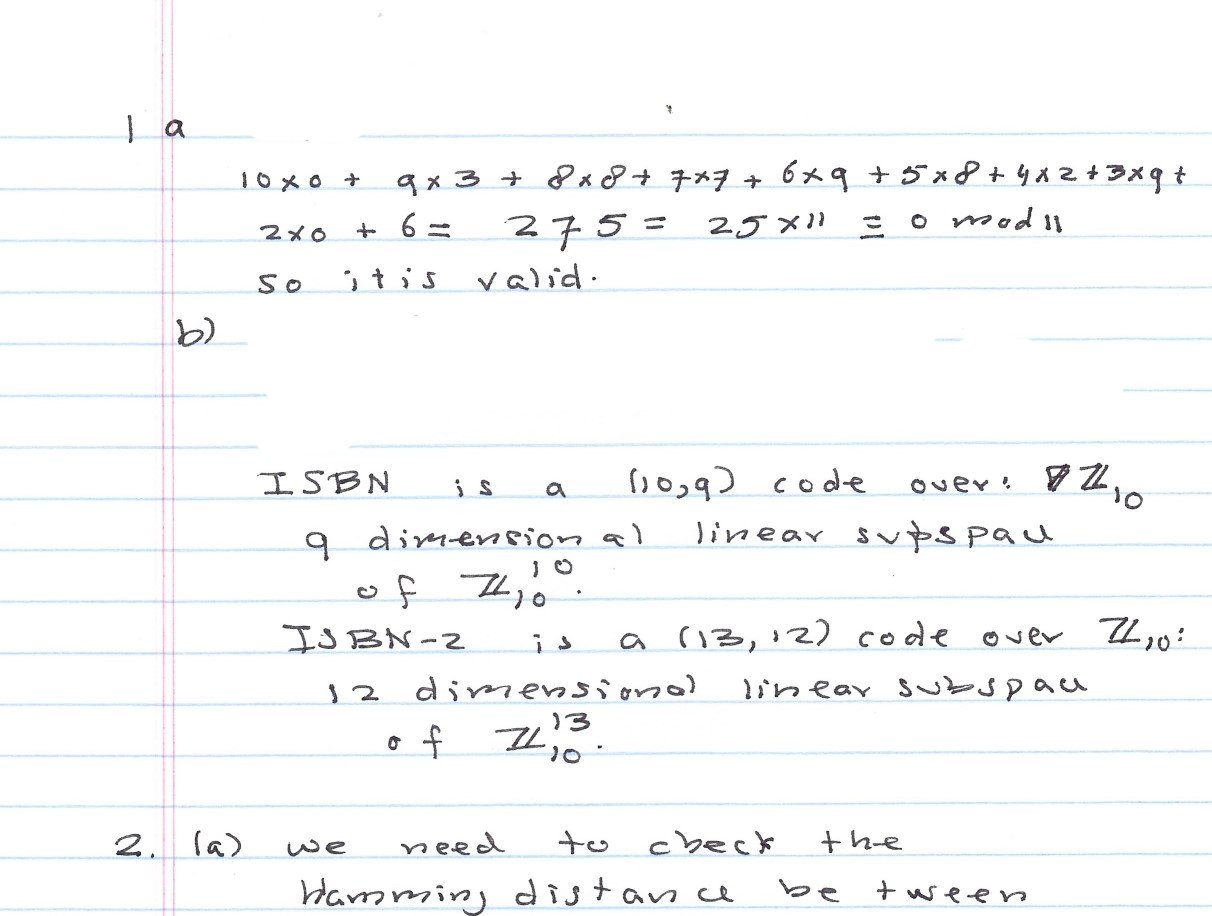 1 a
10×0 + 9×3 + 8×8 + 7×7 + 6×9 + 5×8 + 4×2 + 3×9 +
2×0 + 6 = 275 = 25×11 ≡ 0 mod 11
so it is valid.
b)
ISBN is a (10,9) code over: ℤ₁₀
9 dimensional linear subspace
of ℤ₁₀¹⁰.
ISBN-2 is a (13,12) code over ℤ₁₀:
12 dimensional linear subspace
of ℤ₁₀¹³.
2. (a) we need to check the
Hamming distance between